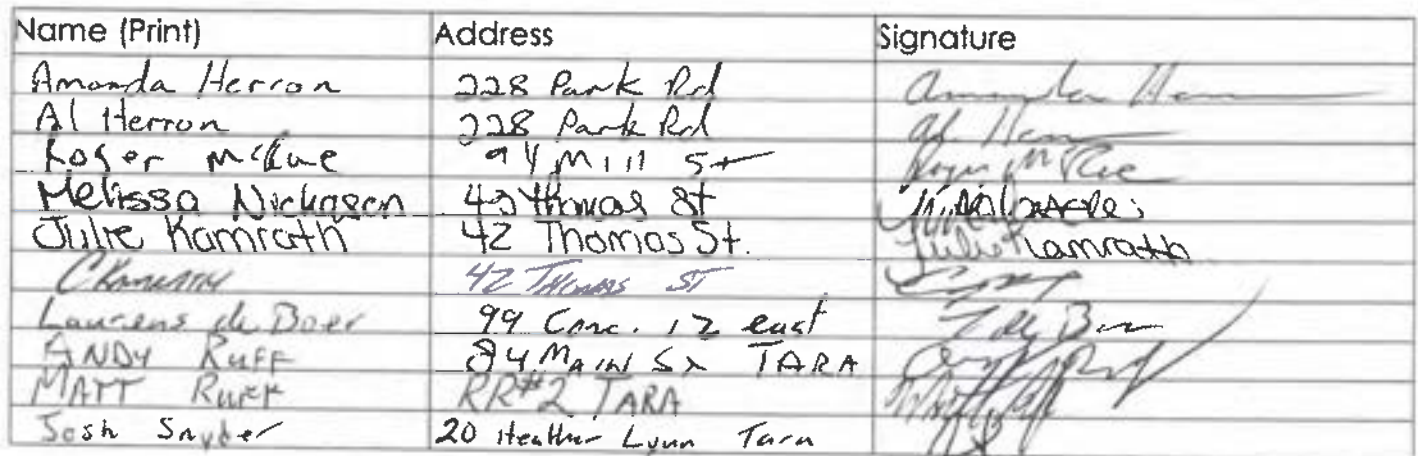 Name (Print) Address Signature
Amanda Herron 228 Park Rd
Al Herron 228 Park Rd Al Herron
Roger McKue 94 Mill St Roger
Melissa Nickason 42 Thomas St
Julie Kamrath 42 Thomas St. Julie Kamrath
C Kamrath 42 Thomas St
Laurens de Boer 99 Conc. 12 east
ANDY RUFF 84 Main St TARA
MATT RUFF RR#2 TARA
Josh Snyder 20 Heather Lynn Tara